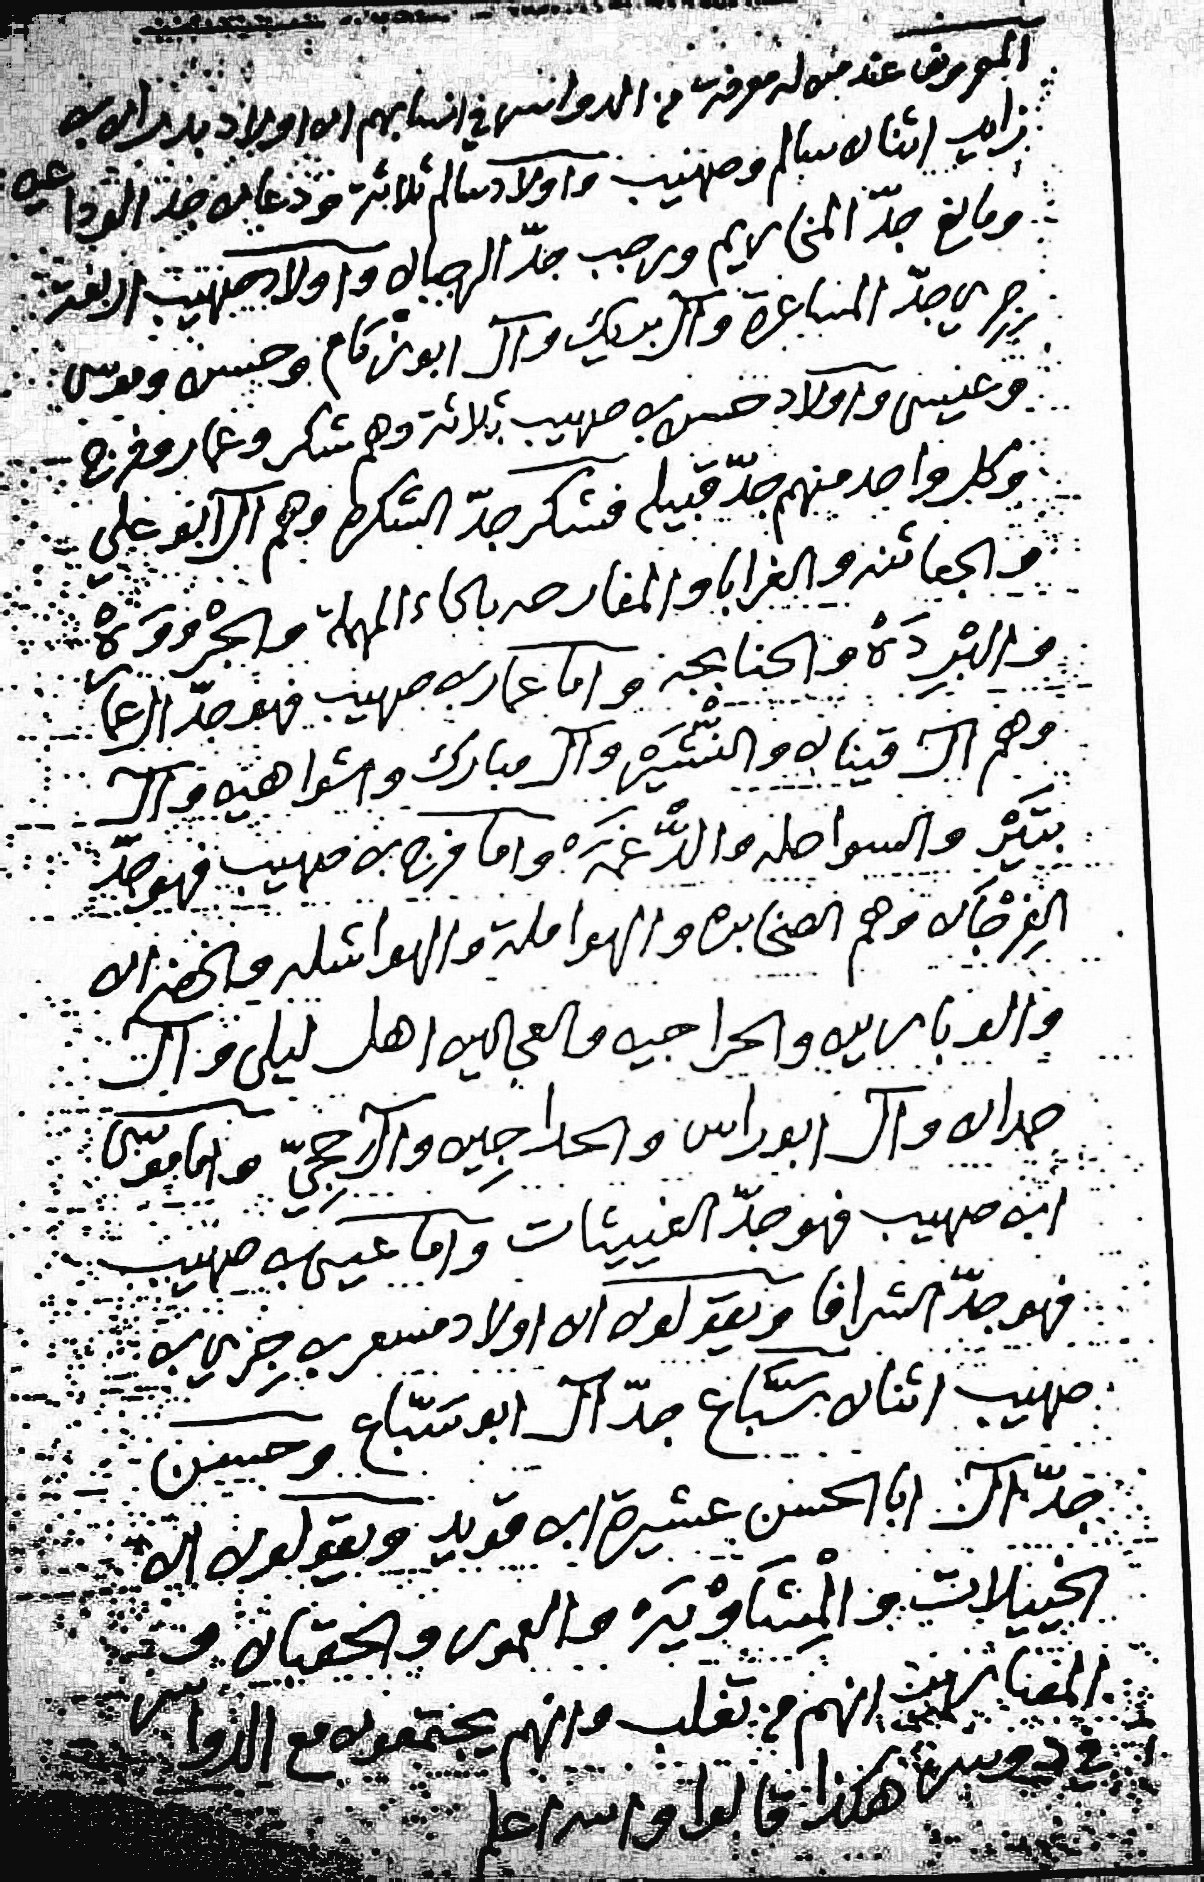 المعروف عند من له معرفة من الدواسر في انسابهم ان اولاد بدران بن
زايد اثنان سالم وصهيب واولاد سالم ثلاثة ودعان جد الوداعين
ومانع جدّ المخاريم ورجب جدّ الرجبان واولاد صهيب اربعة
جري جدّ المساعرة وآل بريك وآل ابو وحسن وموسى
وعيسى واولاد حسن بن صهيب ثلاثة وهم شكر وعمار وفرج
وكل واحد منهم جدّ قبيله فشكر جدّ الشكره وهم آل ابو علي
والجعاثنه والغرابا والمفارحه بالحاء المهملة والجْرووَهْ
والبْرِدَهْ والحنابجه واما عمار بن صهيب فهو جدّ العمار
وهم آل قينان والنّْتشَيَه وآل مبارك والشواهين وآل
بتَيْر والسواحله والدَّغمَه واما فرج بن صهيب فهو جدّ
الفرْجَان وهم الصخابره والهواملة والهواشله والخضران
والوبارين والحراجين والعجالين اهل ليلى وآل
حمدان وآل ابو راس والحداجين وآل حجّيّ واما موسى
ابن صهيب فهو جدّ الغييثات واما عيسى بن صهيب
فهو جدّ الشرافا ويقولون ان اولاد مسعر بن جري بن
صهيب اثنان سَبَّاع جدّ آل ابو سَبّاع وحسن
جدّ آل ابا الحسن عشيرة ابن قويد ويقولون ان
الخييلات والْمشَاوْيَه والعمور والحقبان و
المصارير انهم من تغلب وانهم يجتمعون مع الدواسر
في دوسر هكذا قالوا والله اعلم